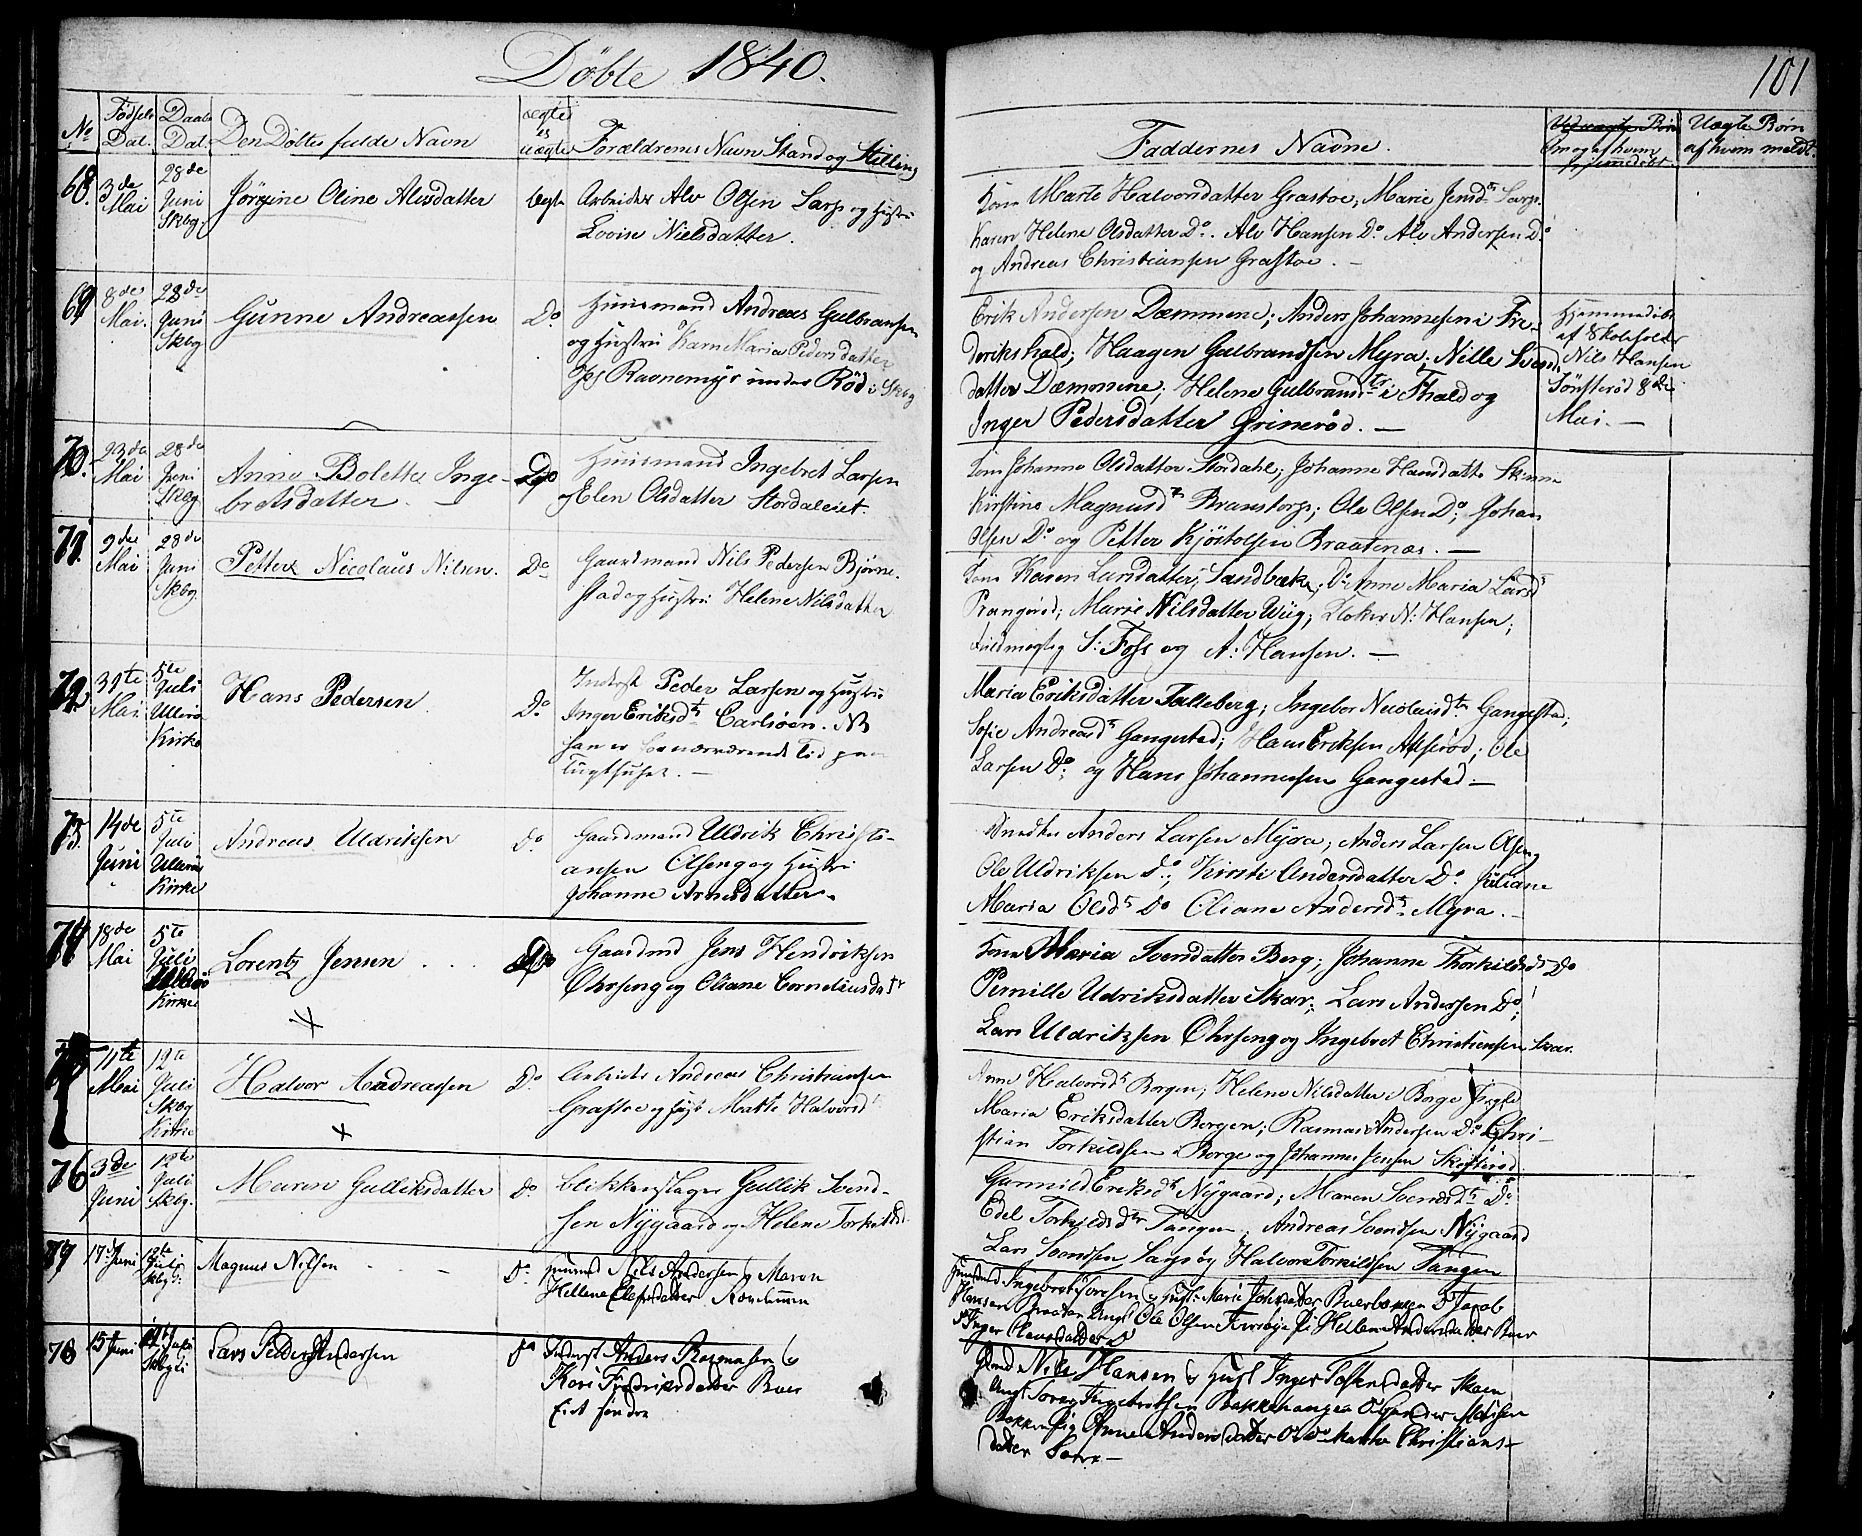 Döbte 1840.
101
No
Födsels Dat.
Daabs Dat.
Den Döbtes fulde Navn
ægte es uægte
Forældrenes Navn Stand og Stilling
Faddernes Navne.
Uægte Börn af hvem meldt.
68.
3de Mai
28de Juni Skbg
Jörgine Oline Alvsdatter
Ægte
Arbeider Alv Olsen Sarp og Hustru
Lovise Nielsdatter.
Kone Marte Halvorsdatter Grastoe, Marie Jensdr Sarp.
Karen Helene Olsdatter Do. Alv Hansen Do Alv Andersen Do
og Andreas Christiansen Grastoe. —
69
8de Mai.
28de Juni Skbg
Gunne Andreassen
Do.
Huusmand Andreas Gulbransen
og Hustru Karn Maria Pedersdatter
Ravnemyr under Röd i Skbg
Erik Andersen Dæmmene; Anders Johannesen i Fre-
derikshald; Haagen Gulbrandsen Myra. Nille Svends
datter Dæmmene; Helene Gulbransdtr i Fhald og
Inger Pedersdatter Grimeröd. —
Hjemmedöbt
af Skoleholder
Nils Hansen
8de
Mai. —
70.
23de Mai
28de Juni Skbg
Anne Bolette Inge-
bretsdatter —
Do
Huusmand Ingebret Larsen
Elen Olsdatter Stordaleiet.
Kone Johanne Olsdatter Stordahl; Johanne Hansdatter
Kirstine Magnusdr Branstorp; Ole Olsen Do; Johan
Olsen Do og Petter Kjöstolsen Braatenæs. —
71.
9de Mai
28de Juni Skbg
Petter Nicolaus Nilsen.
Do
Gaardmand Nils Pedersen Björne-
stad og Hustru Helene Nilsdatter
Kone Karen Larsdatter Sandbæk; Do Anne Maria Larsdr
Marie Nilsdatter Wiig; Kloker N: Hansen;
Fuldmægtig S: Foss og A: Hansen. —
72.
31te Mai.
5te Juli Ullerö Kirke
Hans Pedersen
Do
Inderst Peder Larsen og Hustru
Inger Eriksdr Carlsöen. NB
han er for nærværende Tid paa
Tugthuset. —
Maria Eriksdatter Talleberg; Ingebor Nicolaisdtr Gangestad;
Sofie Andreasdr Gangestad; Hans Eriksen; Ole
Larsen Do; og Hans Johannessen Gangestad. —
73.
14de Juni
5te Juli Ullerö Kirke
Andreas Uldriksen
do
Gaardmand Uldrik Christi-
ansen Olseng og Hustru
Johanne Arnesdatter.
Anders Larsen Myra, Anders Larsen Olseng
Ole Uldriksen do; Kirsti Andersdatter Do. Juliane
Maria Olsdr Do Oliane Andersdr Myra. —
74
18de Mai
5te Juli Ullerö Kirke
Lorentz Jensen . . .
Do
Gaardmd Jens Hendriksen
Öhrseng og Oliane Corneliusdatr
Kone Maria Svensdatter Berg; Johanne Thorkildsdr Do
Pernille Udriksdatter Skar; Lars Andersen Do;
Lars Uldriksen Öhrseng og Ingebret Christiensen Skar.
11te Mai
12te Juli Skbg Kirke
Halvor Andreassen
Do
Arbeider Andreas Christiansen
Grastoe og Hust Marte Halvorsdr
Anne Halvorsdr Borgen; Helene Nilsdatter i Borge
Maria Eriksdatter Borgen; Rasmus Andersen Do Chri-
stian Torkildsen Borge og Johannes Jensen
76
3de Juni
12te Juli Skbg.
Maren Gulliksdatter
Do.
Blikkenslager Gullik Svend-
sen Nygaard og Helene Torkildsdr
Gunnild Eriksdr Nygaard; Maren Svensdtr Do
Edel Torkildsdtr Tangen, Andreas Svendsen Nygaard
Lars Svendsen Sarp og Halvor Torkildsen Tangen
77
17de Juni
12te Juli Skbg:
Magnus Nilsen
Do
Nils Andersen og Maren
Hellene
Ingebret Toresen og Hust: Marie Johsdatter
Hansen Ole Olsen Hellene Andersdatter
Inger Clausdatter Do
78
15t Juni
Lars Peder Andersen
do
Inderst Anders Rasmusen og
Kari Fredriksdatter
Nils Hansen og Hust Inger
Ungk Tore Ingebretsen Bakkehaugen
Anne Andersdatter Marthe Christians-
datter —